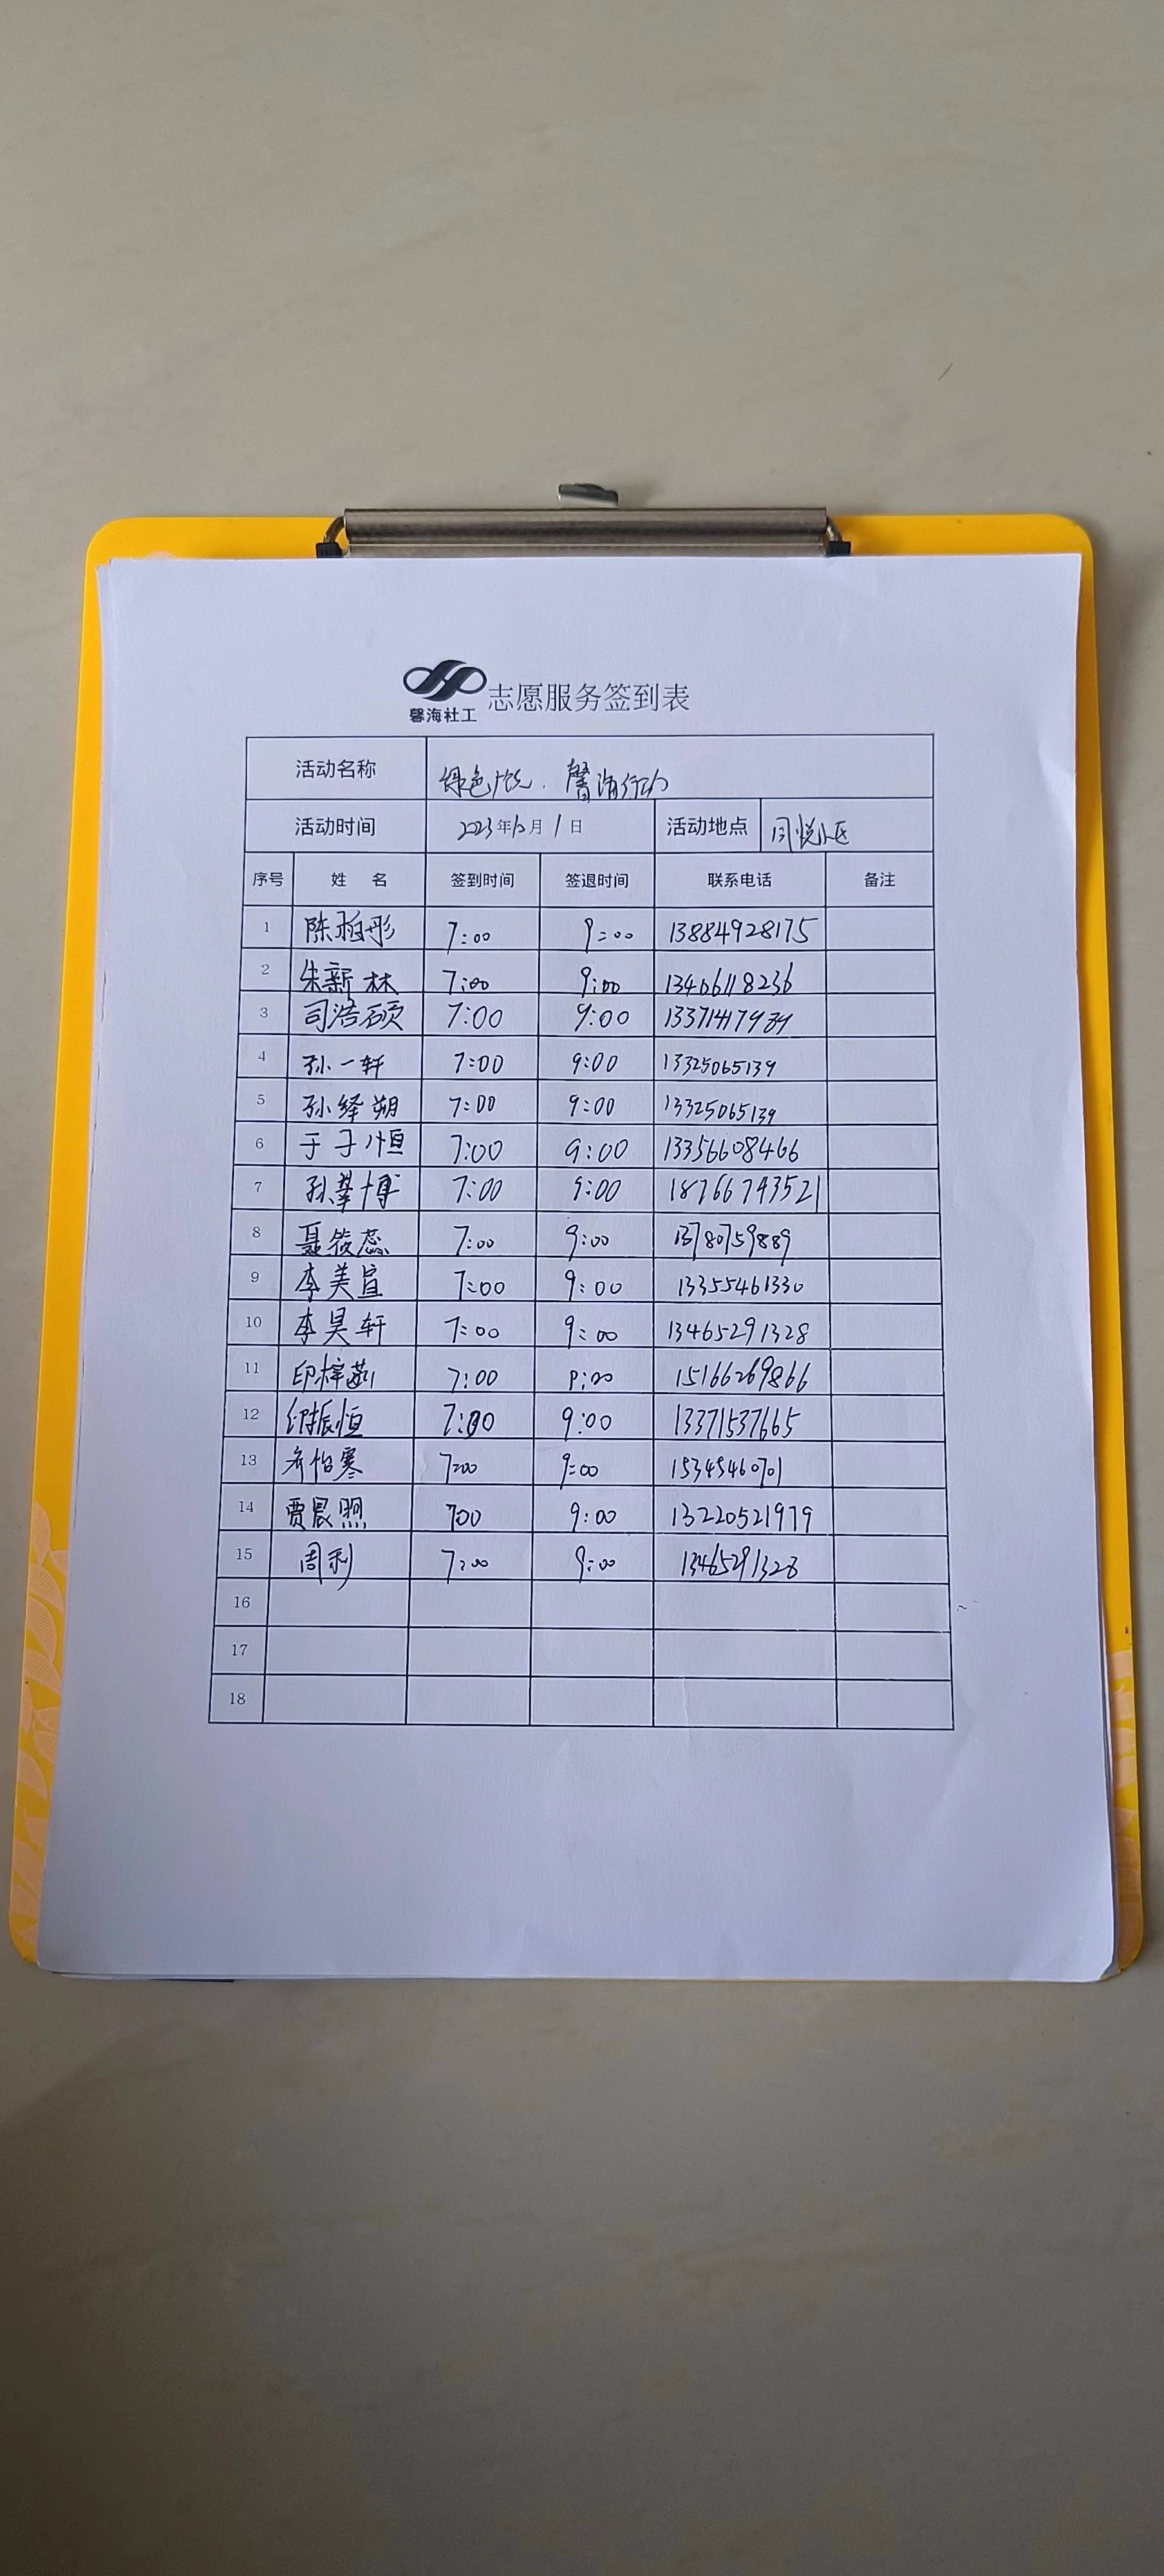 馨海社工 志愿服务签到表
活动名称 绿色 馨海行动
活动时间 2023年10月1日 活动地点 同悦小区
序号 姓 名 签到时间 签退时间 联系电话 备注
1 陈柏彤 7:00 9:00 13884928175
2 朱新林 7:00 9:00 13406118236
3 司浩硕 7:00 9:00
4 孙一轩 7:00 9:00 13325065139
5 孙绎朔 7:00 9:00 13325065139
6 于子恒 7:00 9:00 13356608466
7 孙 博 7:00 9:00 18766743521
8 聂筱蕊 7:00 9:00 13780759889
9 李美萱 7:00 9:00 13355461330
10 李昊轩 7:00 9:00 13465291328
11 印梓 7:00 9:00 15166269866
12 印振恒 7:00 9:00 13371537665
13 怡寒 7:00 9:00 15345460701
14 贾晨照 700 9:00 13220521979
15 周利 7:00 9:00 13465291328
16
17
18